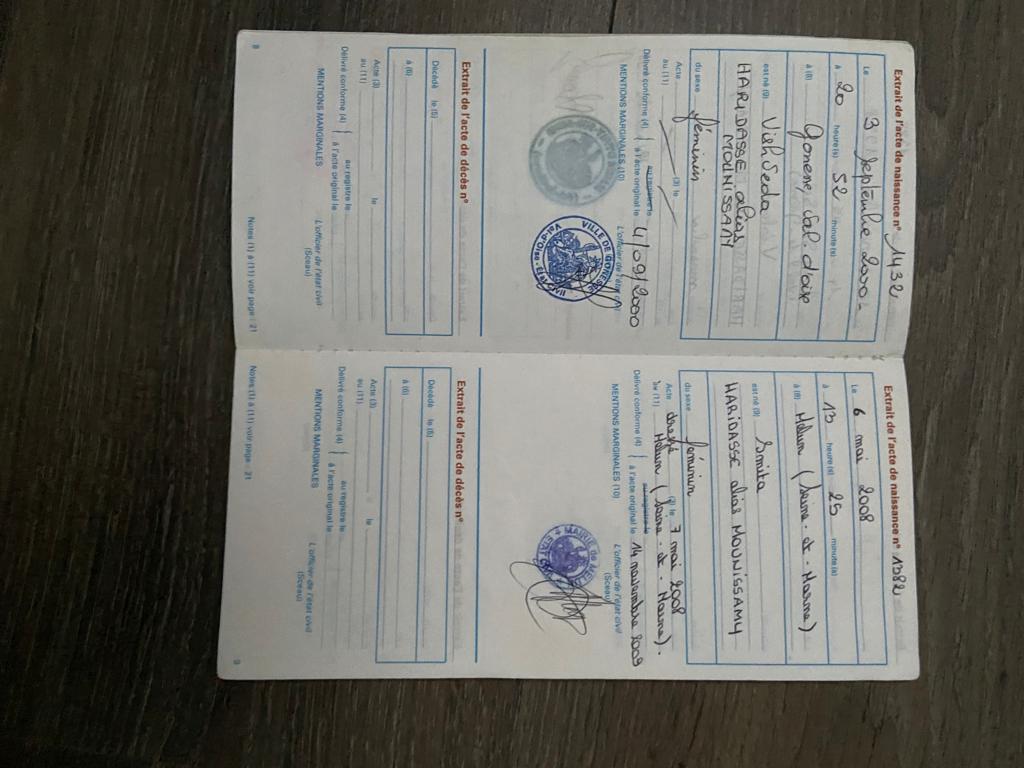 Extrait de l'acte de naissance n° 1432
Le 3 septembre 2000
à 20 heure(s) 52 minute(s)
à (8) Gonesse, Val-d'oise
est né (9)
HARIDASSE alias
MOUNISSAMY
du sexe féminin
Acte (3) le
au (11)
Délivré conforme (4) au registre le
à l'acte original le 4/09/2000
MENTIONS MARGINALES (10) L'officier de l'état civil
VILLE DE GONESSE
Extrait de l'acte de décès n°
Décédé le (5)
à (6)
Acte (3) le
au (11)
Délivré conforme (4) au registre le
à l'acte original le
MENTIONS MARGINALES L'officier de l'état civil
(Sceau)
8 Notes (1) à (11) voir page : 21
Extrait de l'acte de naissance n° 1382
Le 6 mai 2008
à 13 heure(s) 25 minute(s)
à (8) Melun (Seine-et-Marne)
est né (9) Smita
HARIDASSE alias MOUNISSAMY
du sexe féminin
Acte dressé (3) le 7 mai 2008
au (11) Melun (Seine-et-Marne).
Délivré conforme (4) au registre le
à l'acte original le 14 novembre 2009
MENTIONS MARGINALES (10) L'officier de l'état civil
(Sceau)
MAIRIE de
Extrait de l'acte de décès n°
Décédé le (5)
à (6)
Acte (3) le
au (11)
Délivré conforme (4) au registre le
à l'acte original le
MENTIONS MARGINALES L'officier de l'état civil
(Sceau)
Notes (1) à (11) voir page : 21 9